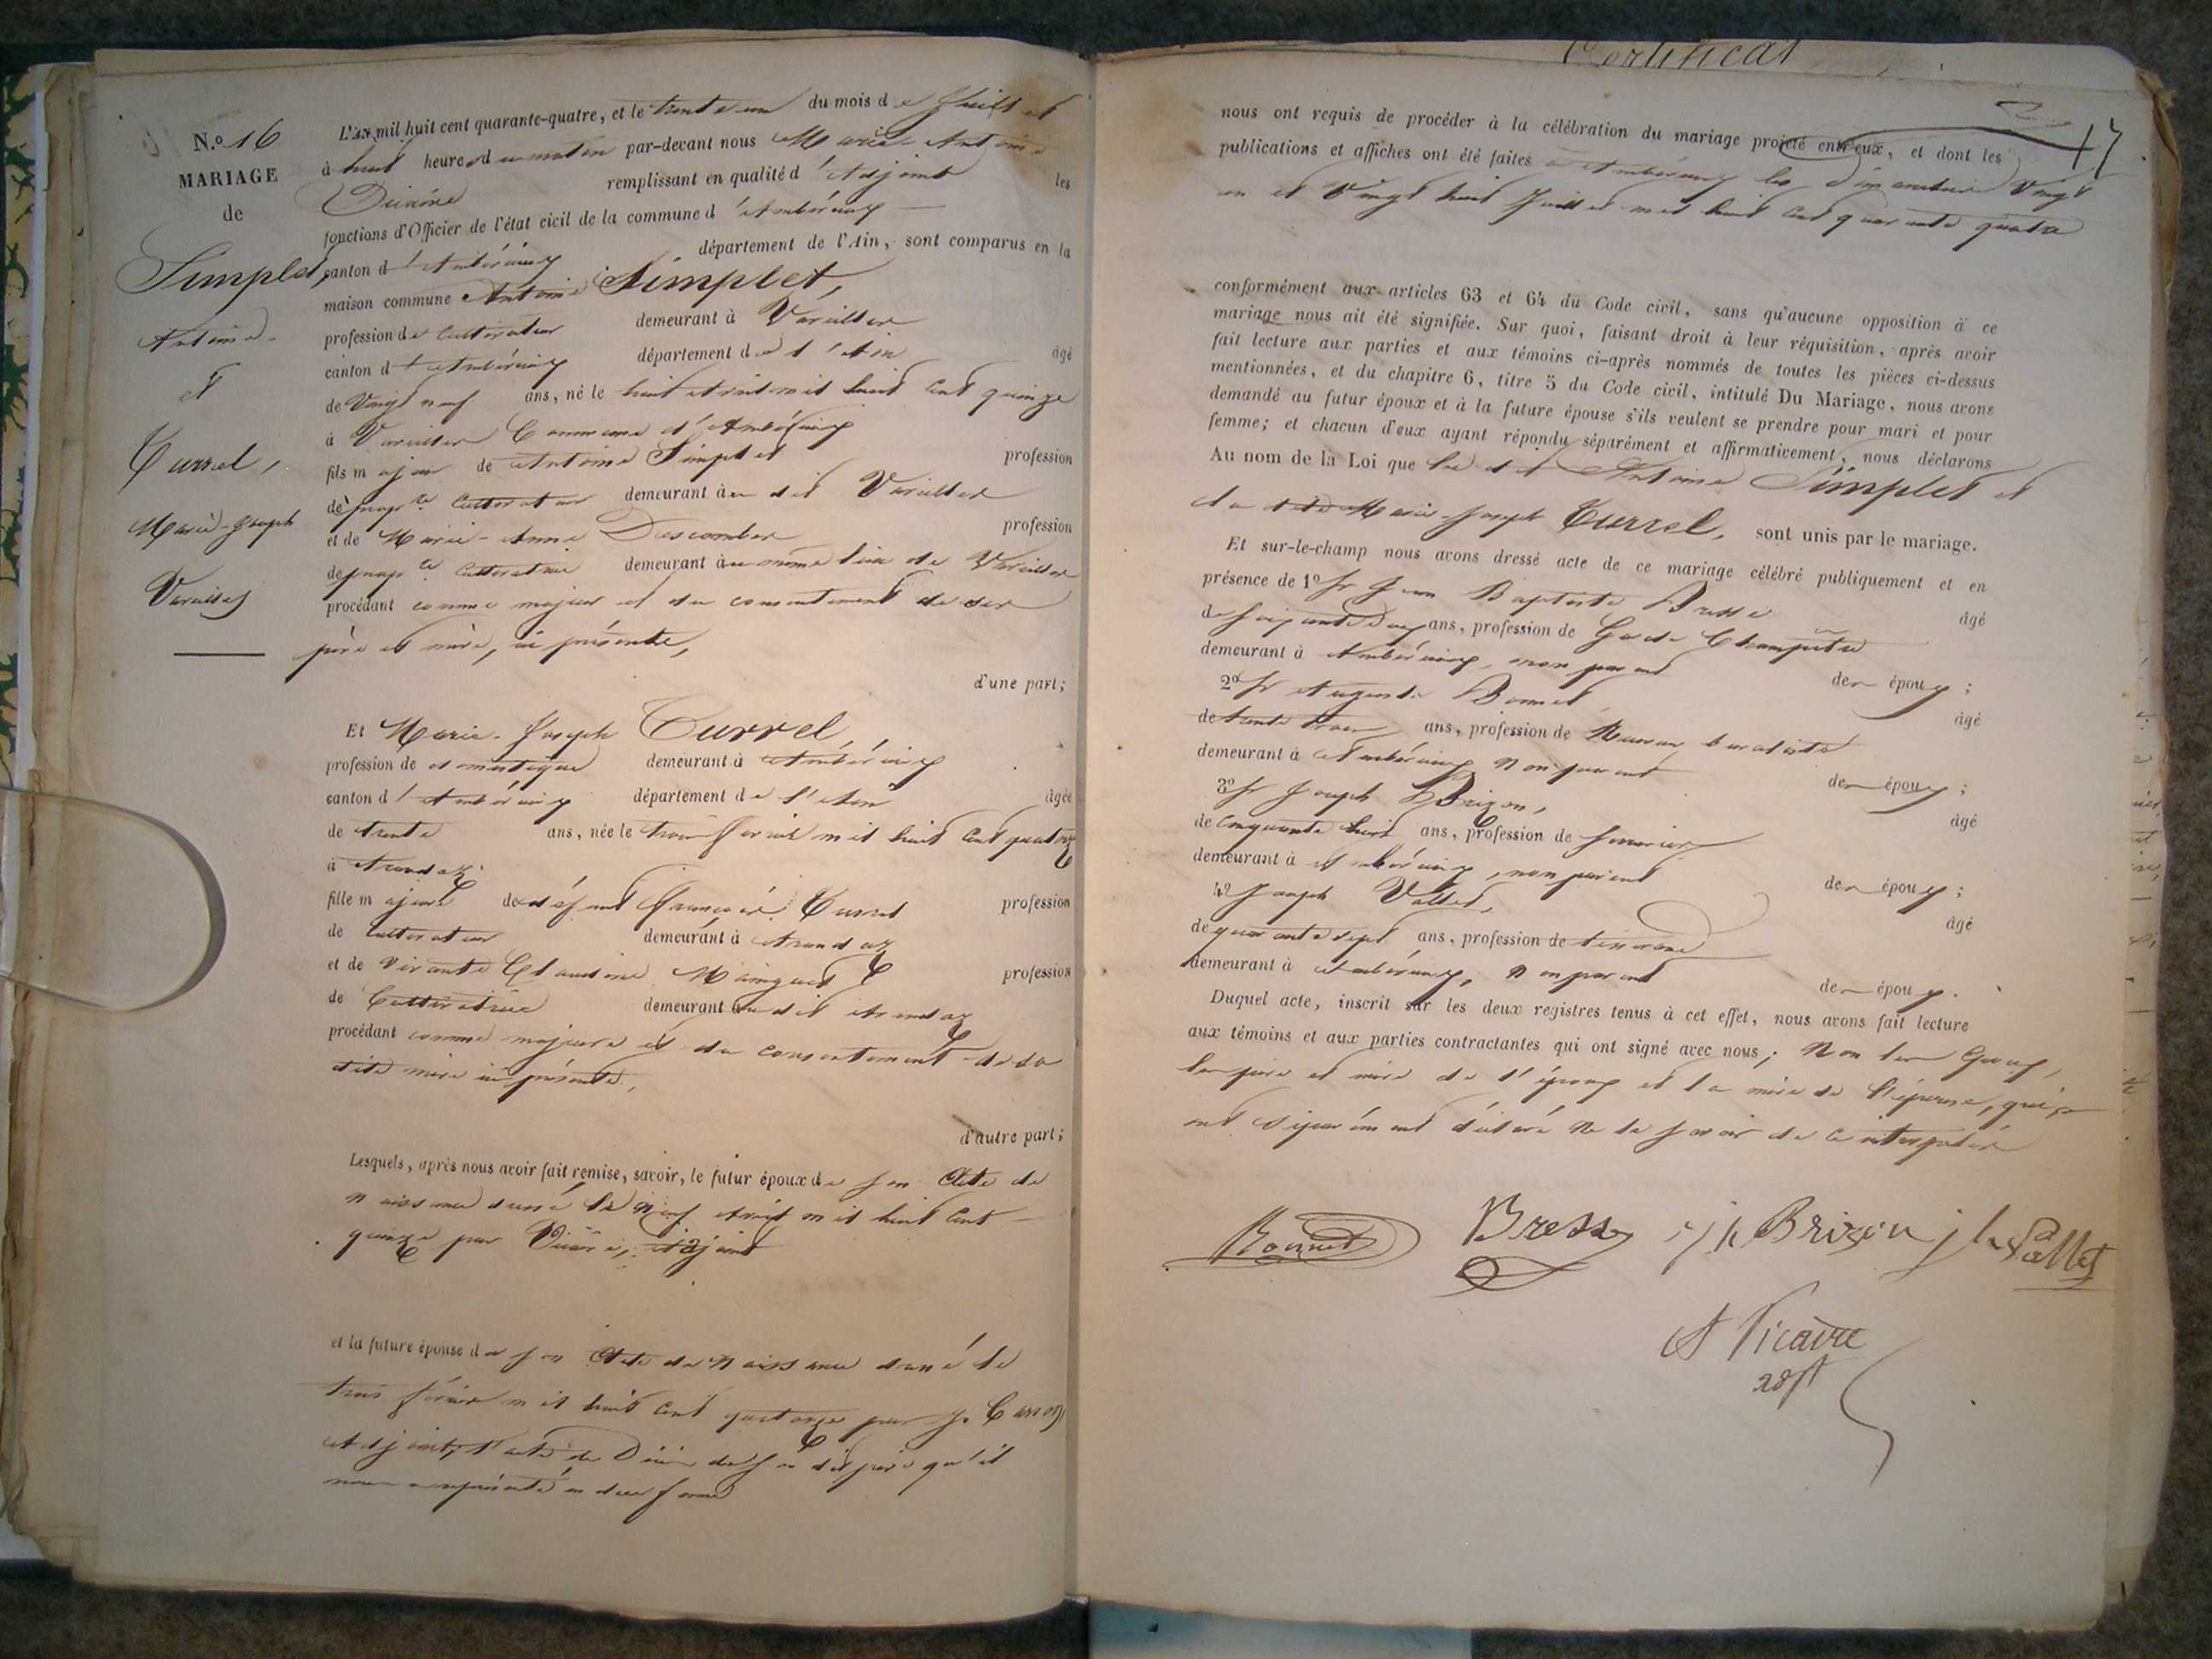 N.o 16
MARIAGE
de
Simplet,
Antoine
et
Currel,
Marie-Joseph
Vareilles
L'AN mil huit cent quarante-quatre, et le trente un du mois de Juillet
à huit heures du matin par-devant nous Marie-Antoine
Vicaire remplissant en qualité d'Adjoint les
fonctions d'Officier de l'état civil de la commune d'Ambérieux
canton d'Ambérieux département de l'Ain, sont comparus en la
maison commune Antoine Simplet,
profession de Cultivateur demeurant à Vareilles
canton d'Ambérieux département de l'Ain âgé
de Vingt neuf ans, né le huit Avril mil huit cent quinze
à Vareilles Commune d'Ambérieux
fils majeur de Antoine Simplet profession
de prop.re Cultivateur demeurant au dit Vareilles
et de Marie-Anne Descombes profession
de prop.re Cultivatrice demeurant au même lieu de Vareilles
procédant comme majeur et du consentement de ses
père et mère, ici présents,
d'une part;
Et Marie-Joseph Currel,
profession de domestique demeurant à Ambérieux
canton d'Ambérieux département de l'Ain âgée
de trente ans, née le trois Février mil huit cent quatorze
à Arandaz
fille majeure de défunt François Currel profession
de Cultivateur demeurant à Arandaz
et de vivante Claudine profession
de Cultivatrice demeurant au dit Arandaz
procédant comme majeure et du consentement de sa
dite mère ici présente,
d'autre part;
Lesquels, après nous avoir fait remise, savoir, le futur époux de son Acte de
naissance dressé le neuf Avril mil huit cent
quinze par Vicaire, Adjoint
et la future épouse de son Acte de Naissance dressé le
trois Février mil huit cent quatorze par J. Carron
Adjoint, l'acte de Décès de son dit père qu'il
nous a représenté en due forme
Certificat
17
nous ont requis de procéder à la célébration du mariage projeté entr'eux, et dont les
publications et affiches ont été faites à Ambérieux les dimanches Vingt
un et Vingt huit Juillet mil huit cent quarante quatre
conformément aux articles 63 et 64 du Code civil, sans qu'aucune opposition à ce
mariage nous ait été signifiée. Sur quoi, faisant droit à leur réquisition, après avoir
fait lecture aux parties et aux témoins ci-après nommés de toutes les pièces ci-dessus
mentionnées, et du chapitre 6, titre 5 du Code civil, intitulé Du Mariage, nous avons
demandé au futur époux et à la future épouse s'ils veulent se prendre pour mari et pour
femme; et chacun d'eux ayant répondu séparément et affirmativement, nous déclarons
Au nom de la Loi que le dit Antoine Simplet et
la dite Marie-Joseph Currel, sont unis par le mariage.
Et sur-le-champ nous avons dressé acte de ce mariage célébré publiquement et en
présence de 1o Sr Jean Baptiste Bresse âgé
de soixante dix ans, profession de Garde Champêtre
demeurant à Ambérieux, non parent des époux;
2o Sr Auguste Bonnet âgé
de trente trois ans, profession de buraliste
demeurant à Ambérieux non parent des époux;
3o Sr Joseph Brizon, âgé
de cinquante huit ans, profession de
demeurant à Ambérieux, non parent des époux;
4o Joseph Vallet, âgé
de quarante sept ans, profession de tisserand
demeurant à Ambérieux, non parent des époux.
Duquel acte, inscrit sur les deux registres tenus à cet effet, nous avons fait lecture
aux témoins et aux parties contractantes qui ont signé avec nous; Non les époux,
les père et mère de l'époux et la mère de l'épouse, qui
ont séparément déclaré ne le savoir de ce interpellés
Bonnet Bresse jh Brizon jh Vallet
A Vicaire
adjt